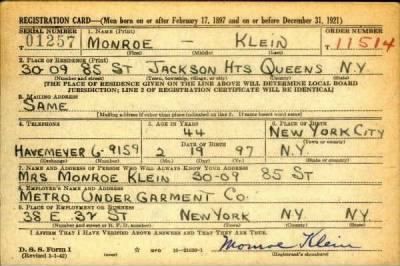 REGISTRATION CARD—(Men born on or after February 17, 1897 and on or before December 31, 1921)
SERIAL NUMBER 1. NAME (Print) ORDER NUMBER
01257 MONROE — KLEIN 11514
(First) (Middle) (Last)
2. PLACE OF RESIDENCE (Print)
30-09 85 ST JACKSON HTS QUEENS N.Y.
(Number and street) (Town, township, village, or city) (County) (State)
[THE PLACE OF RESIDENCE GIVEN ON THE LINE ABOVE WILL DETERMINE LOCAL BOARD
JURISDICTION; LINE 2 OF REGISTRATION CERTIFICATE WILL BE IDENTICAL]
3. MAILING ADDRESS
SAME
[Mailing address if other than place indicated on line 2. If same insert word same]
4. TELEPHONE 5. AGE IN YEARS 6. PLACE OF BIRTH
44 NEW YORK CITY
DATE OF BIRTH (Town or county)
HAVEMEYER 6-9159 2 19 97 N.Y.
(Exchange) (Number) (Mo.) (Day) (Yr.) (State or country)
7. NAME AND ADDRESS OF PERSON WHO WILL ALWAYS KNOW YOUR ADDRESS
MRS MONROE KLEIN 30-09 85 ST
8. EMPLOYER'S NAME AND ADDRESS
METRO UNDERGARMENT CO.
9. PLACE OF EMPLOYMENT OR BUSINESS
38 E. 32 ST NEW YORK NY. NY.
(Number and street or R. F. D. number) (Town) (County) (State)
I AFFIRM THAT I HAVE VERIFIED ABOVE ANSWERS AND THAT THEY ARE TRUE.
D. S. S. Form 1 Monroe Klein
(Revised 1-1-42) (Registrant's signature)